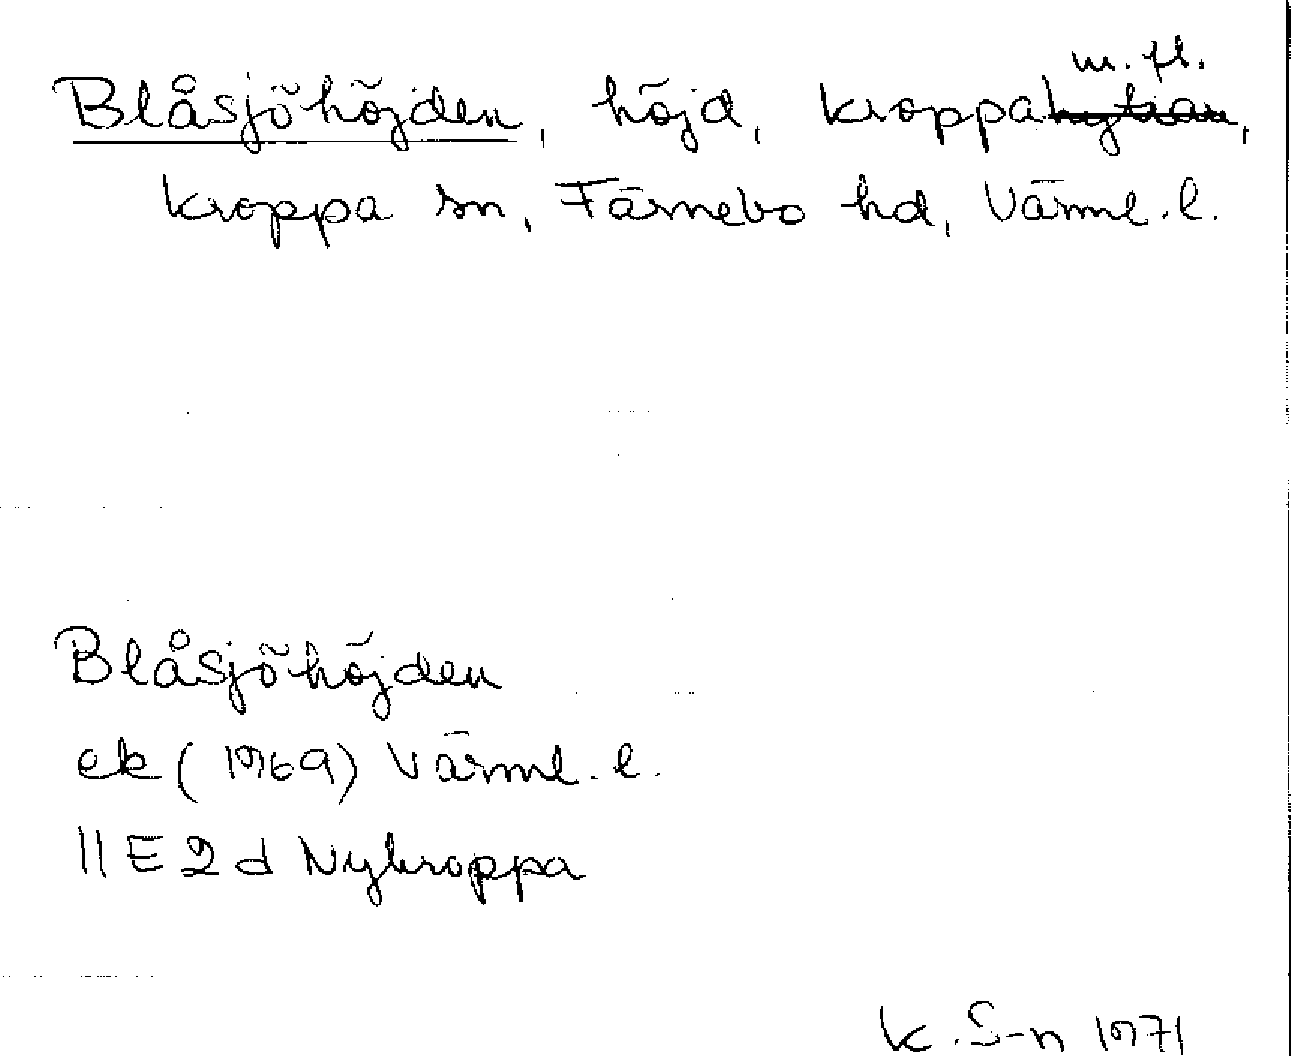 Blåsjöhöjden, höjd, Kroppa m. fl.,
Kroppa sn, Färnebo hd, Värml. l.
Blåsjöhöjden
ek (1969) Värml. l.
11E 2d Nykroppa
K. S-n 1971